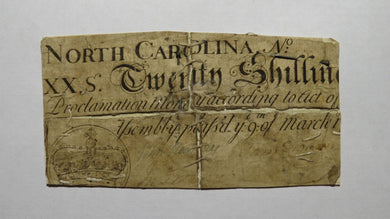 NORTH CAROLINA, No
XX.S. Twenty Shilling
Proclamation Money according to Act of
Assembly pass'd ye 9th of March 1